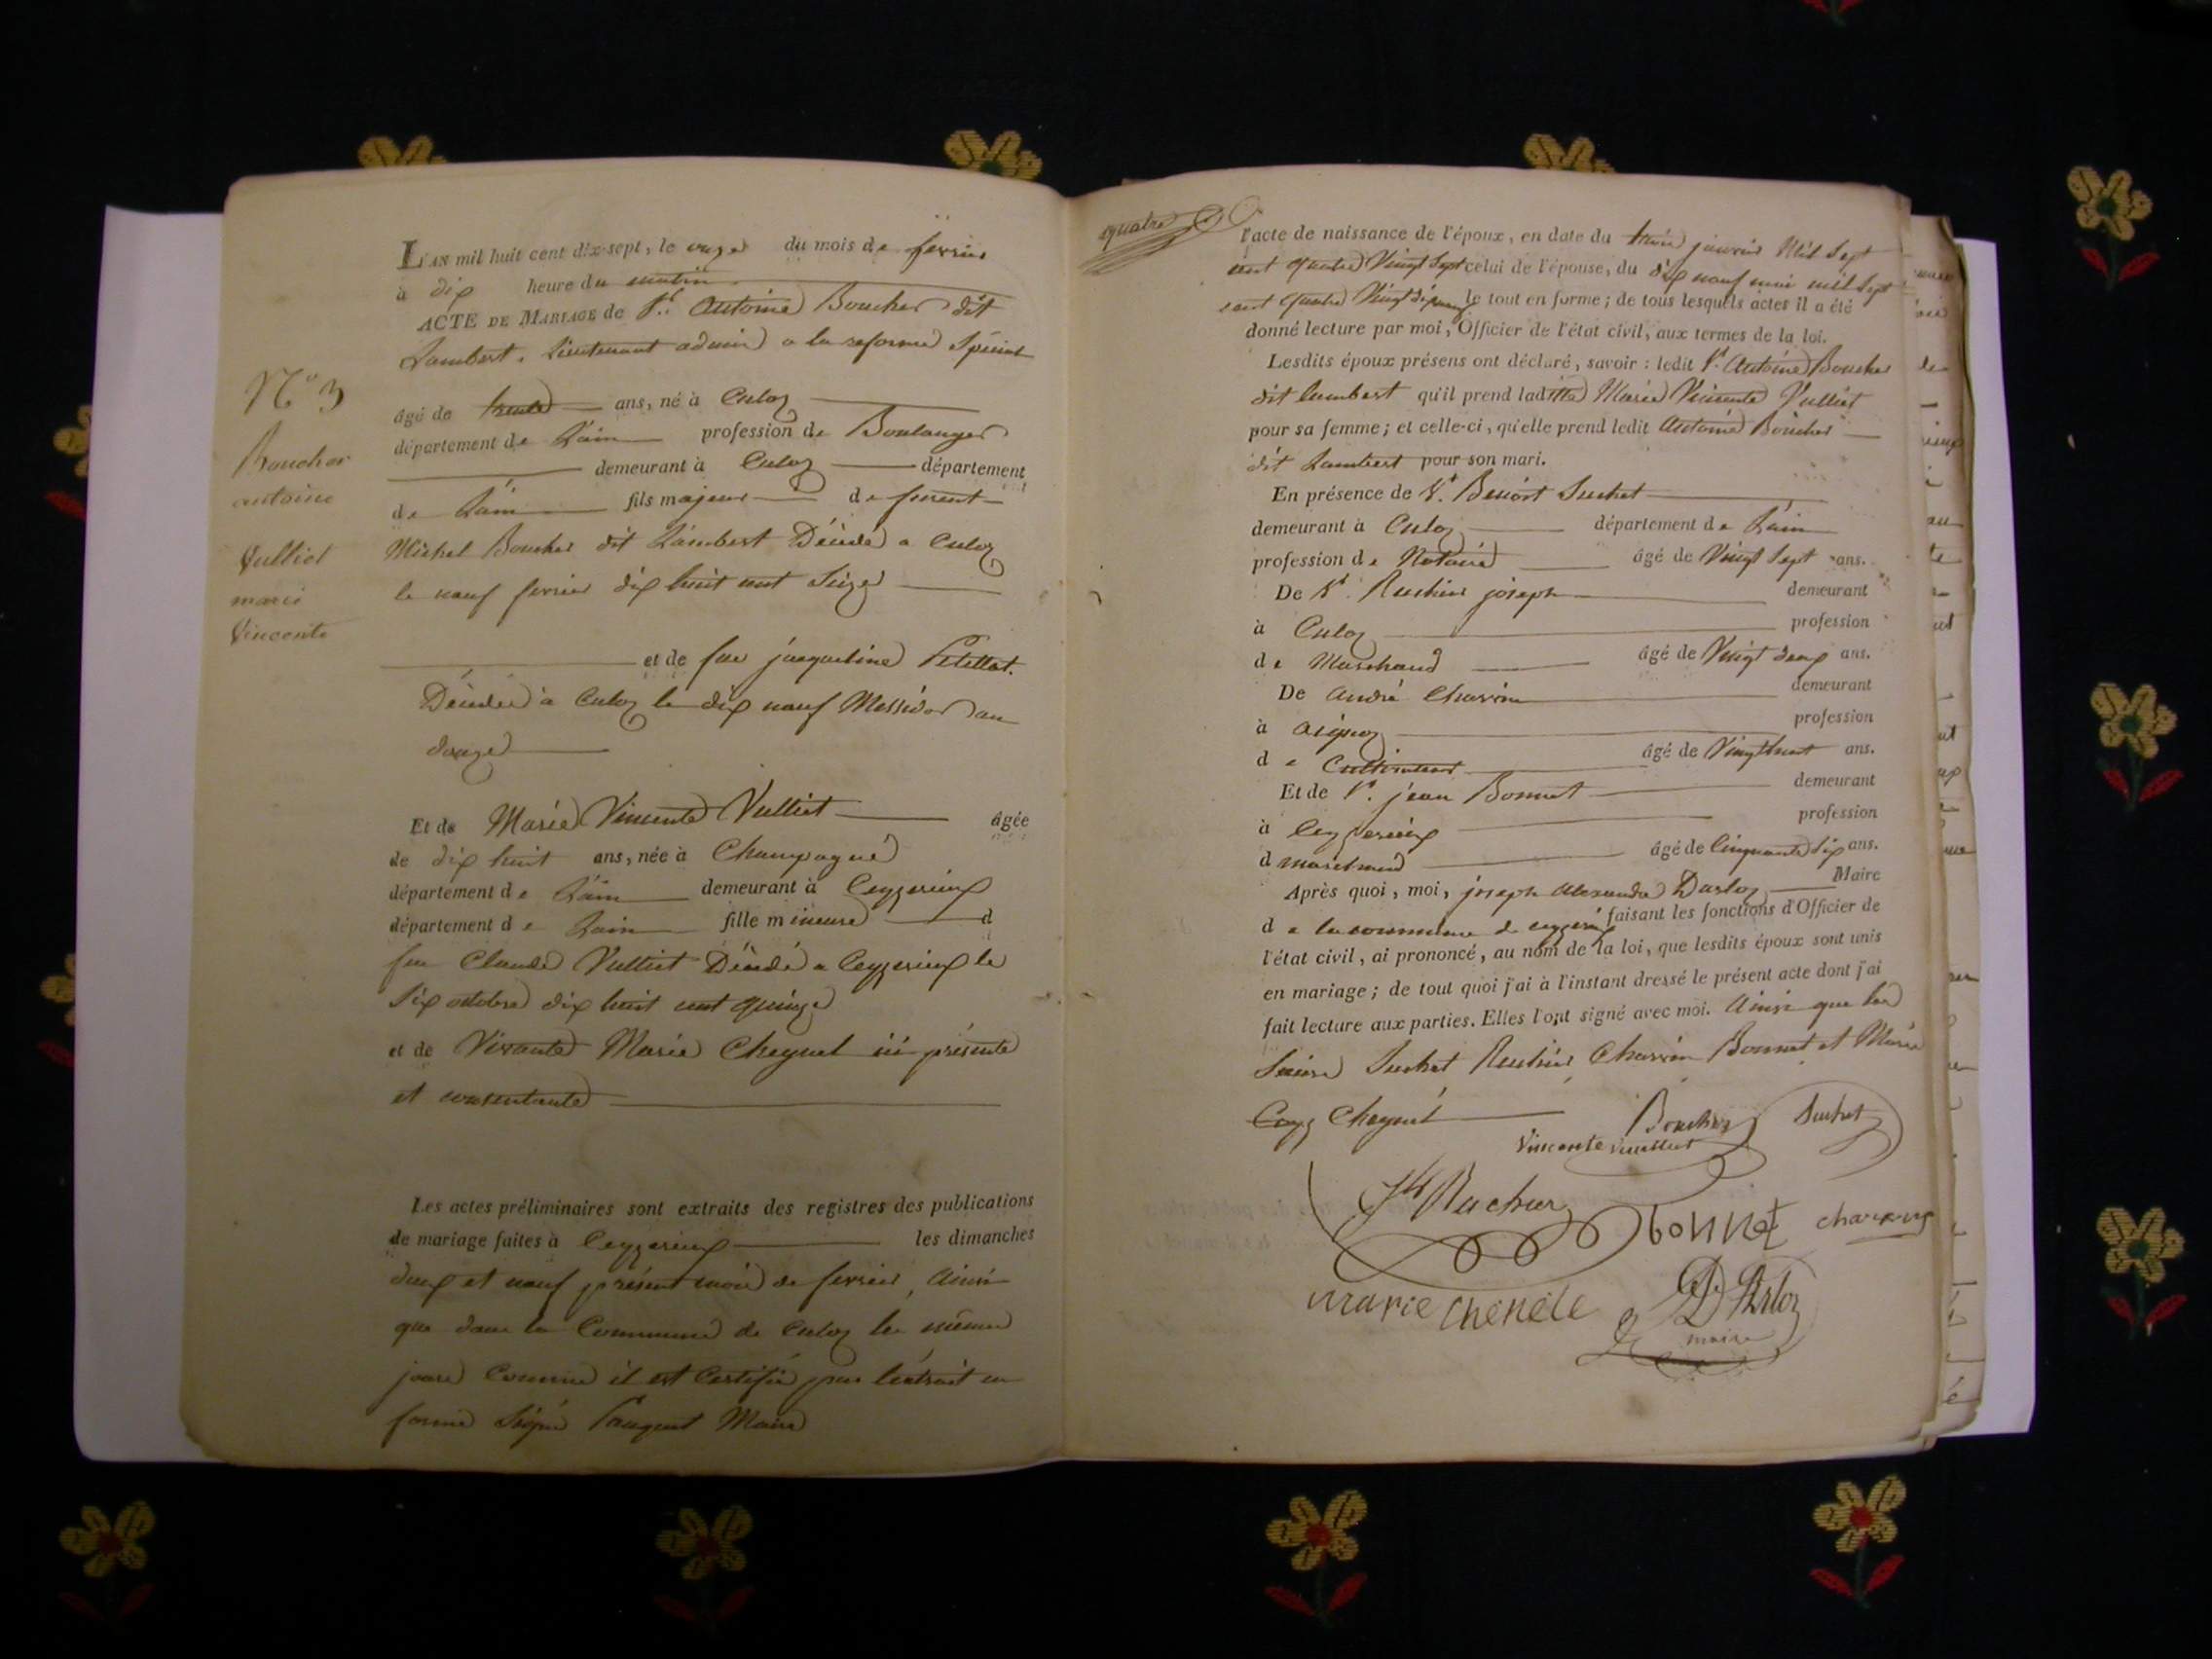 N° 3
Boucher
antoine
Vulliet
marie
Vincente
L'AN mil huit cent dix-sept, le onze du mois de fevrier
à dix heure du matin
ACTE DE MARIAGE de Sr. Antoine Boucher dit
Lambert, Lieutenant admis a la reforme
âgé de trente ans, né à Culoz
département de L'ain profession de Boulanger
demeurant à Culoz département
de L'ain fils majeur de furent
Michel Boucher dit Lambert Décédé a Culoz
le neuf fevrier dix huit cent Seize
et de feue jacqueline
Décédée à Culoz le dix neuf Messidor an
douze
Et de Marie Vincente Vulliet âgée
de dix huit ans, née à Champagne
département de L'ain demeurant à Ceyzerieux
département de L'ain fille mineure d
feu Claude Vulliet Décédé a Ceyzerieux le
Six octobre dix huit cent quinze
et de Vivante Marie Cheynel ici présente
et consentante
Les actes préliminaires sont extraits des registres des publications
de mariage faites à Ceyzerieux les dimanches
deux et neuf présent mois de fevrier, ainsi
que dans la Commune de Culoz les mêmes
jours Comme il est Certifié par l'extrait en
forme Signé Maire
quatre
l'acte de naissance de l'époux, en date du janvier Mil Sept
cent quatre Vingt Sept celui de l'épouse, du dix neuf mai mil Sept
cent quatre Vingt le tout en forme; de tous lesquels actes il a été
donné lecture par moi, Officier de l'état civil, aux termes de la loi.
Lesdits époux présens ont déclaré, savoir : ledit Sr. Antoine Boucher
dit lambert qu'il prend laditte Marie Vincente Vulliet
pour sa femme; et celle-ci, qu'elle prend ledit Antoine Boucher
dit Lambert pour son mari.
En présence de Sr. Benoit Suchet
demeurant à Culoz département de L'ain
profession de Notaire âgé de Vingt Sept ans.
De Sr. Ruchier joseph demeurant
à Culoz profession
de Marchand âgé de Vingt deux ans.
De André Charvin demeurant
à profession
de Cultivateur âgé de Vingt huit ans.
Et de Sr. jean Bonnet demeurant
à Ceyzerieux profession
d marchand âgé de Cinquante Six ans.
Après quoi, moi, joseph Alexandre Darloz Maire
d e la commune de ceyzerieux faisant les fonctions d'Officier de
l'état civil, ai prononcé, au nom de la loi, que lesdits époux sont unis
en mariage; de tout quoi j'ai à l'instant dressé le présent acte dont j'ai
fait lecture aux parties. Elles l'ont signé avec moi. Ainsi que les
Suchet Ruchier Charvin Bonnet et Marie
Cheynel
Boucher
Suchet
Vincente Vuilliet
Jh Ruchier
bonnet
charvin
marie cheNéle
Darloz
maire